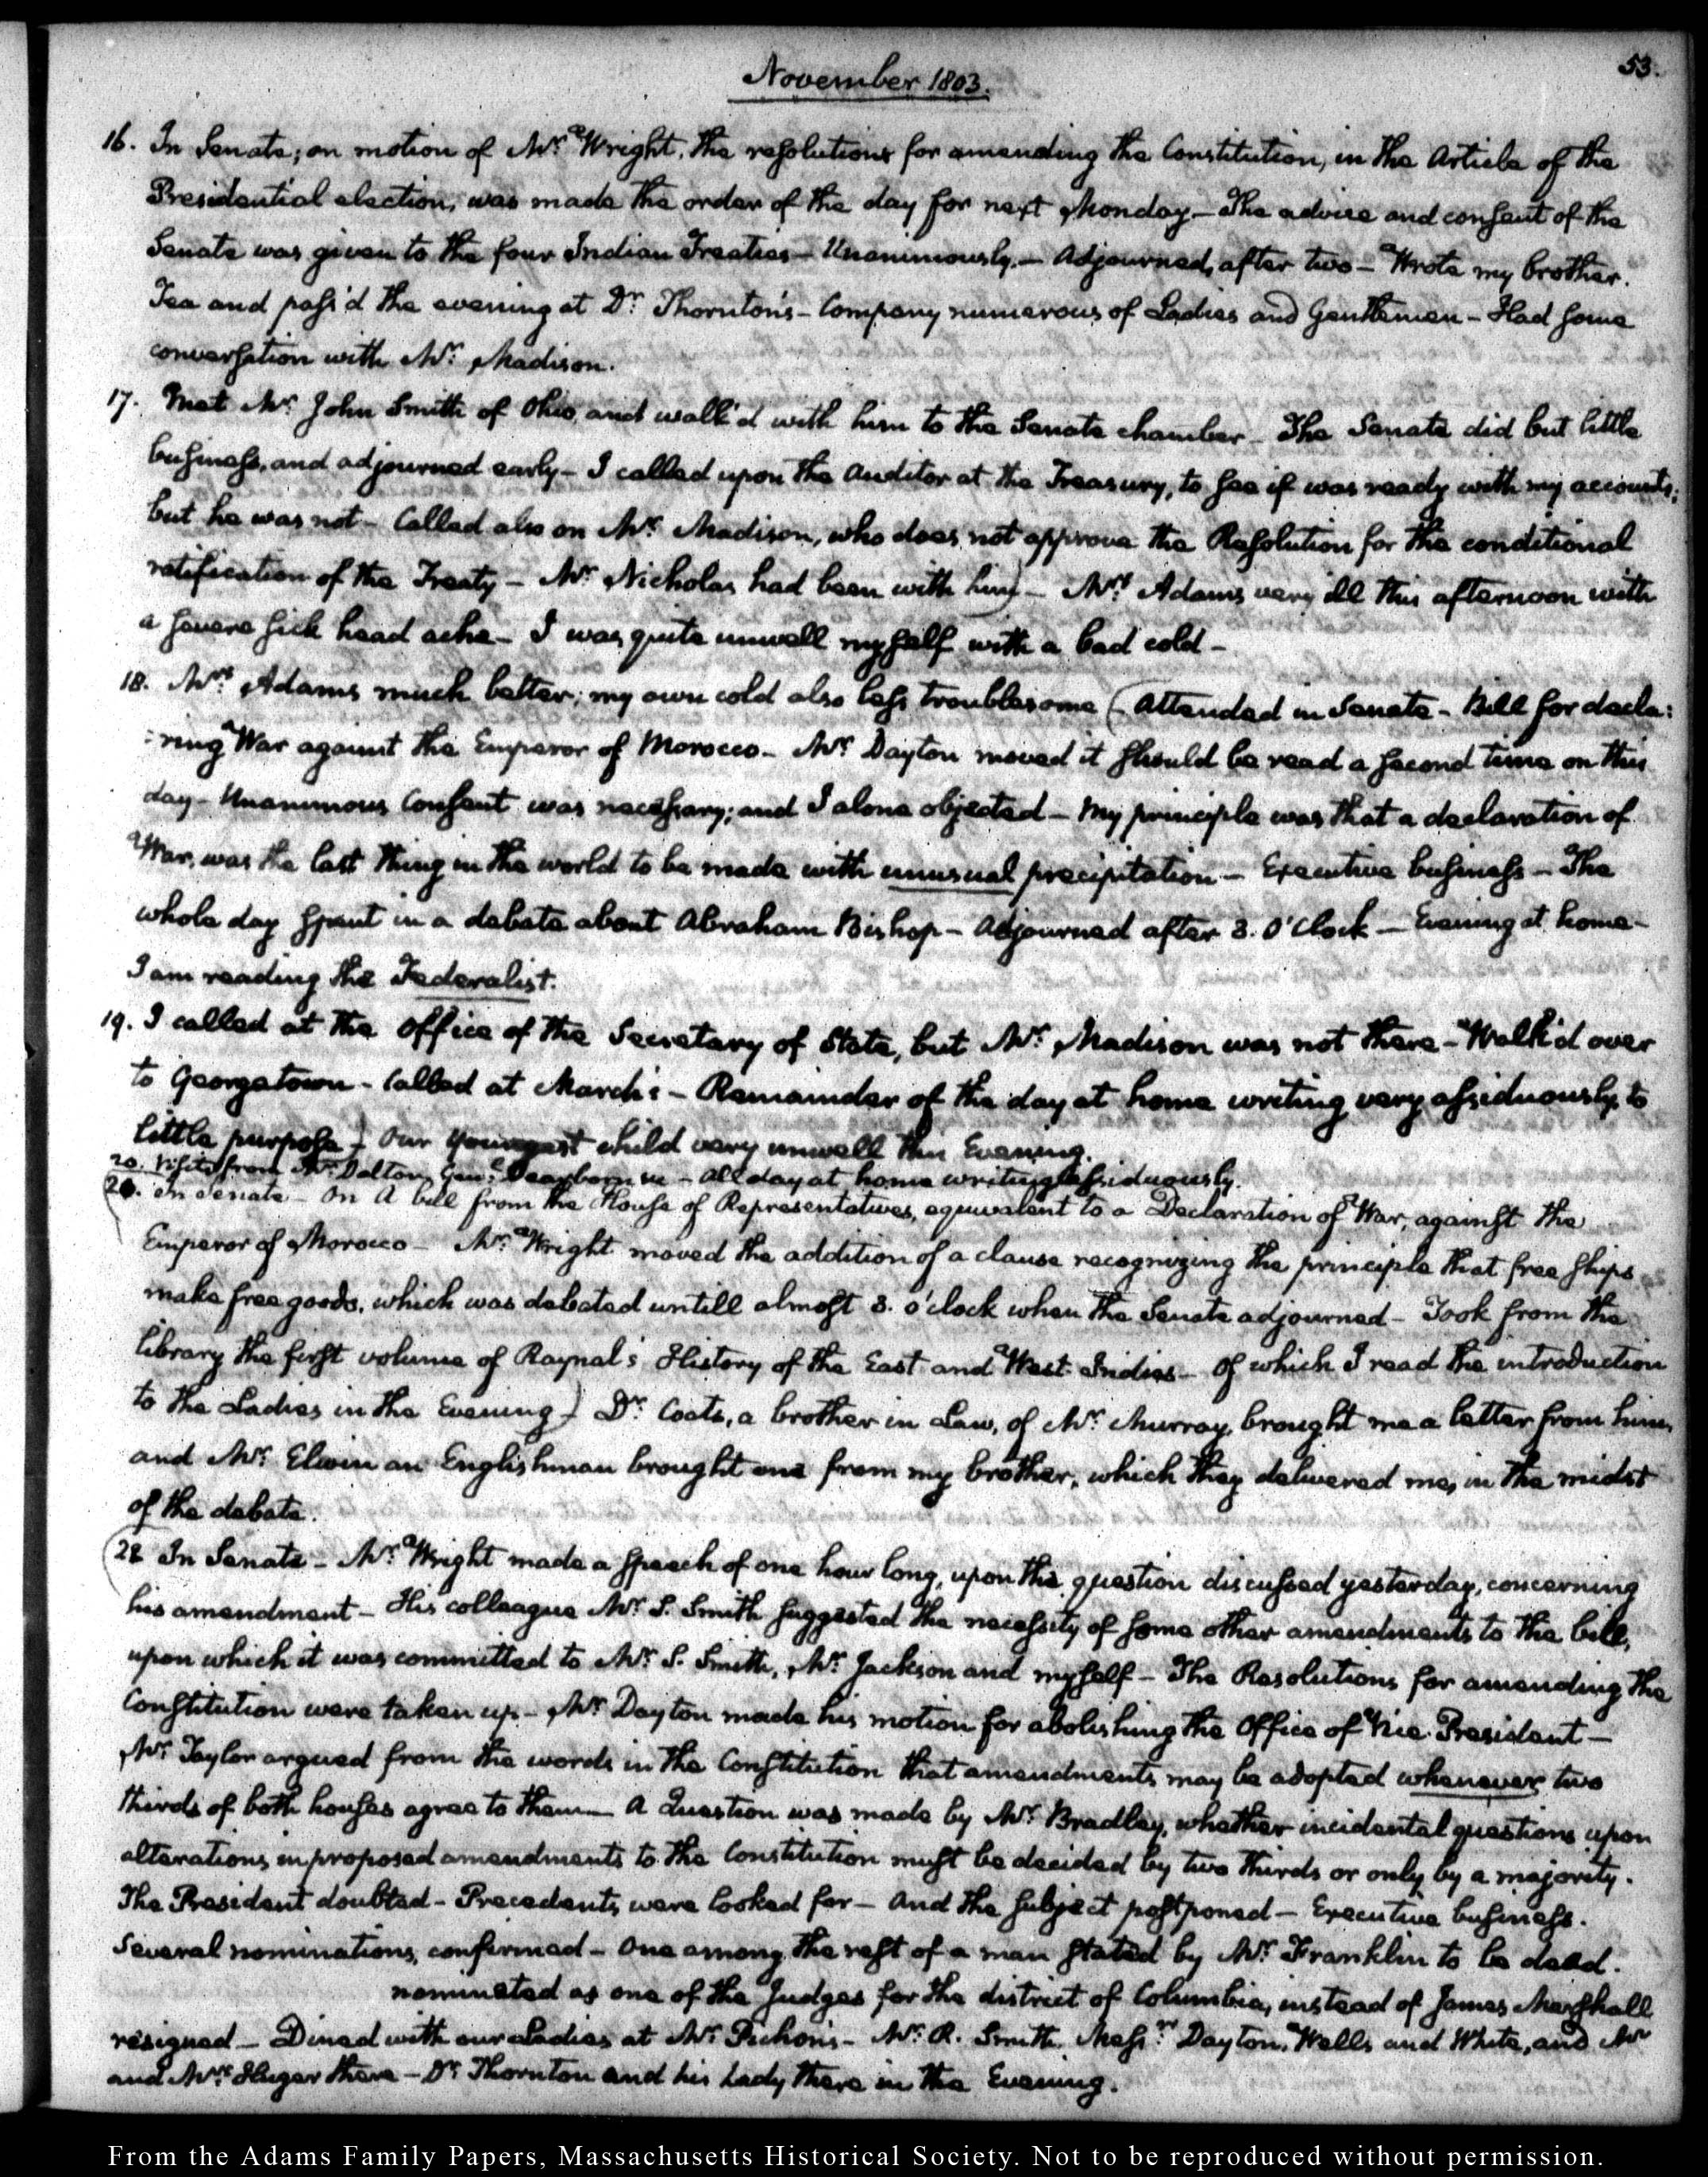 November 1803.
53.
16. In Senate; on motion of Mr. Wright, the resolutions for amending the Constitution, in the Article of the
Presidential election, was made the order of the day for next Monday – The advice and consent of the
Senate was given to the four Indian Treaties – Unanimously. – Adjourned, after two – Wrote my brother.
Tea and pass'd the evening at Dr. Thornton's – Company numerous of Ladies and Gentlemen – Had some
conversation with Mr. Madison.
17. Met Mr. John Smith of Ohio, and walk'd with him to the Senate chamber – The Senate did but little
business, and adjourned early – I called upon the Auditor at the Treasury, to see if was ready with my accounts;
but he was not – Called also on Mr. Madison, who does not approve the Resolution for the conditional
ratification of the Treaty – Mr. Nicholas had been with him) – Mrs. Adams very ill this afternoon with
a severe sick head ache – I was quite unwell myself with a bad cold –
18. Mrs. Adams much better; my own cold also less troublesome (– Attended in Senate – Bill for decla:
:ring War against the Emperor of Morocco – Mr. Dayton moved it should be read a second time on this
day – Unanimous Consent was necessary; and I alone objected – My principle was that a declaration of
War, was the last thing in the world to be made with unusual precipitation – Executive business – The
whole day spent in a debate about Abraham Bishop – Adjourned after 3. O'Clock – Evening at home –
I am reading the Federalist.
19. I called at the Office of the Secretary of State, but Mr. Madison was not there – Walk'd over
to Georgetown – Called at March's – Remainder of the day at home writing very assiduously, to
little purpose –) Our youngest child very unwell this Evening.
20. Visits from Mr. Dalton, Genl. Dearborn &c – All day at home writing assiduously.
21. In Senate – On A bill from the House of Representatives, equivalent to a Declaration of War, against the
Emperor of Morocco – Mr. Wright moved the addition of a clause recognizing the principle that free ships
make free goods, which was debated untill almost 3. o'clock when the Senate adjourned – Took from the
library the first volume of Raynal's History of the East and West Indies – Of which I read the introduction
to the Ladies in the Evening –) Dr. Coats, a brother in Law, of Mr. Murray, brought me a letter from him,
and Mr. Elwin an Englishman brought one from my brother, which they delivered me, in the midst
of the debate.
(22 In Senate – Mr. Wright made a speech of one hour long, upon the question discussed yesterday, concerning
his amendment – His colleague Mr. S. Smith suggested the necessity of some other amendments to the bill,
upon which it was committed to Mr. S. Smith, Mr. Jackson and myself – The Resolutions for amending the
Constitution were taken up – Mr. Dayton made his motion for abolishing the Office of Vice President –
Mr. Taylor argued from the words in the Constitution that amendments may be adopted whenever two
thirds of both houses agree to them – A Question was made by Mr. Bradley, whether incidental questions upon
alterations in proposed amendments to the Constitution must be decided by two thirds or only by a majority.
The President doubted – Precedents were looked for – And the subject postponed – Executive business.
Several nominations, confirmed – One among the rest of a man stated by Mr. Franklin to be dead.
nominated as one of the Judges for the district of Columbia, instead of James Marshall
resigned – Dined with our Ladies at Mr. Pichon's – Mr. R. Smith, Messrs. Dayton, Wells and White, and Mr
and Mrs. Huger there – Dr. Thornton and his Lady there in the Evening.
From the Adams Family Papers, Massachusetts Historical Society. Not to be reproduced without permission.